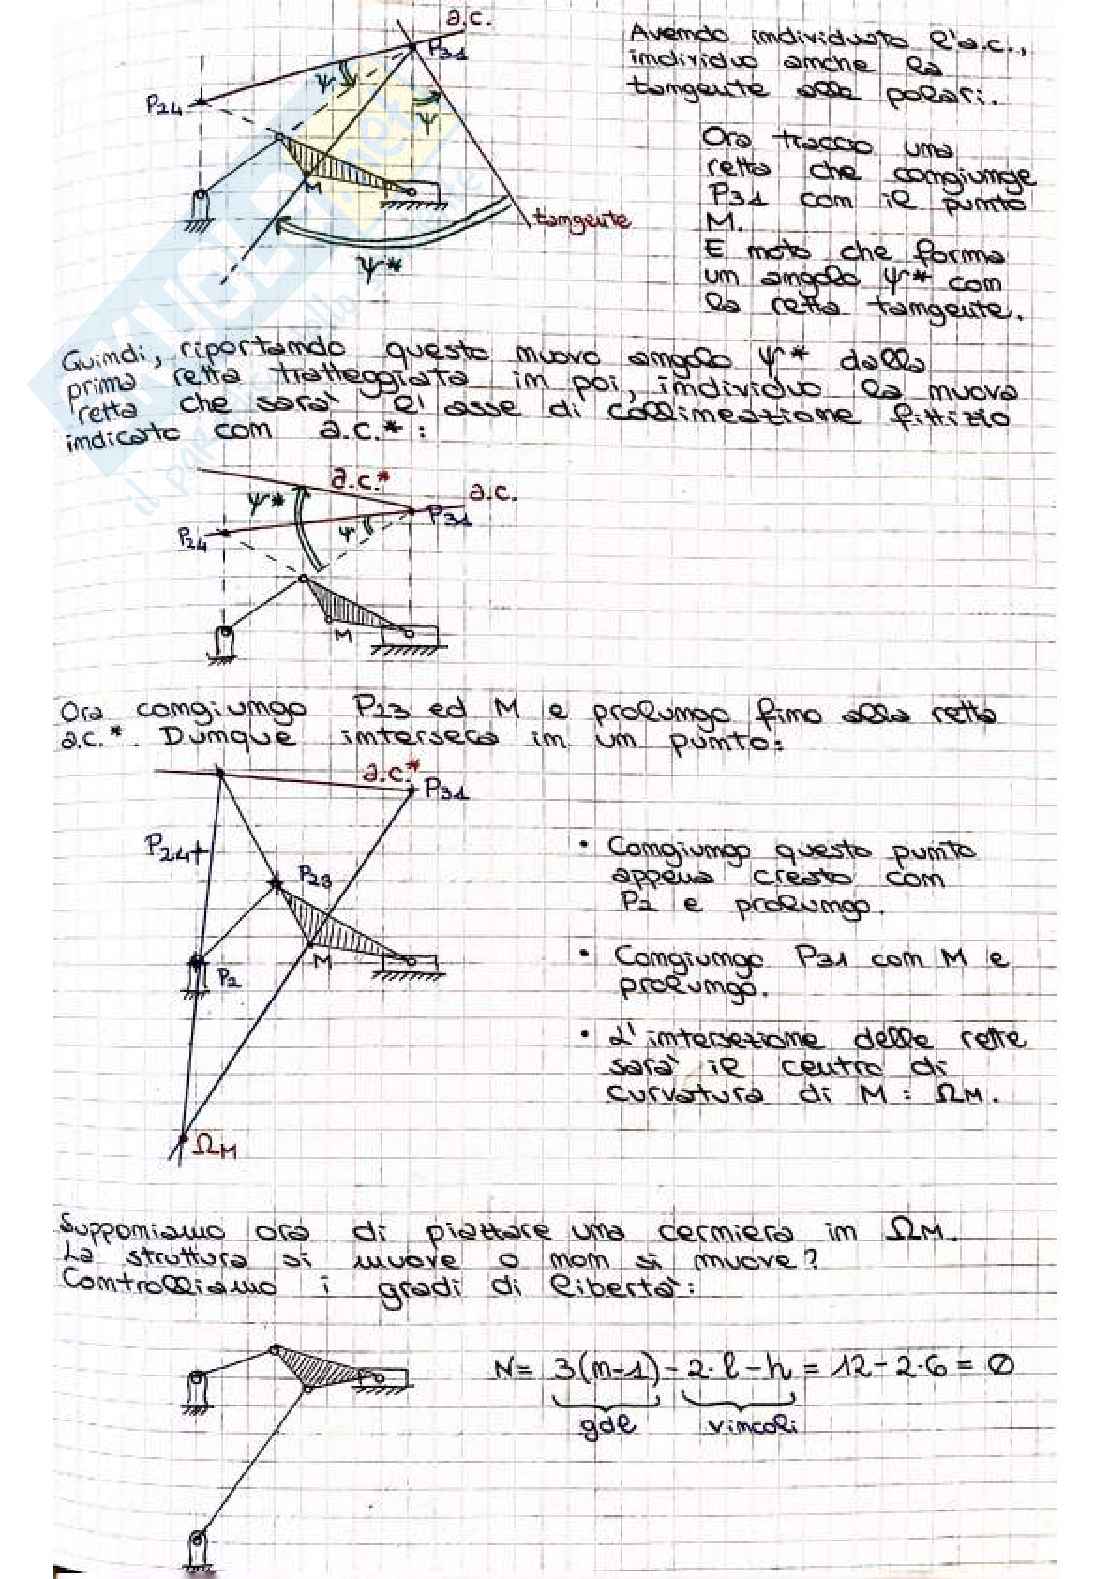 a.c.
P31
ψ
P24
ψ
M
tangente
ψ*
Avendo individuato l'a.c.,
individuo anche la
tangente alle polari.
Ora traccio una
retta che congiunge
P31 con il punto
M.
E noto che forma
un angolo ψ* con
la retta tangente.
Quindi, riportando questo nuovo angolo ψ* dalla
prima retta tratteggiata in poi, individuo la nuova
retta che sarà l'asse di collineazione fittizio
indicato con a.c.*:
a.c.*
a.c.
ψ*
P31
P24
ψ
M
Ora congiungo P23 ed M e prolungo fino alla retta
a.c.*. Dunque interseca in un punto:
a.c.*
P31
P24
P23
M
P2
ΩM
• Congiungo questo punto
appena creato con
P2 e prolungo.
• Congiungo P31 con M e
prolungo.
• L'intersezione delle rette
sarà il centro di
curvatura di M: ΩM.
Supponiamo ora di piattare una cerniera in ΩM.
La struttura si muove o non si muove?
Controlliamo i gradi di libertà:
N= 3(m-1) - 2·l - h = 12 - 2·6 = 0
gdl vincoli